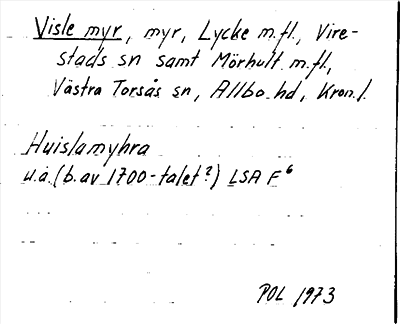 Visle myr, myr, Lycke m.fl., Vire-
stads sn samt Mörhult m.fl.,
Västra Torsås sn, Allbo hd, Kron.l.
Huislamyhra
u.å. (b. av 1700-talet?) LSA F6
POL 1973